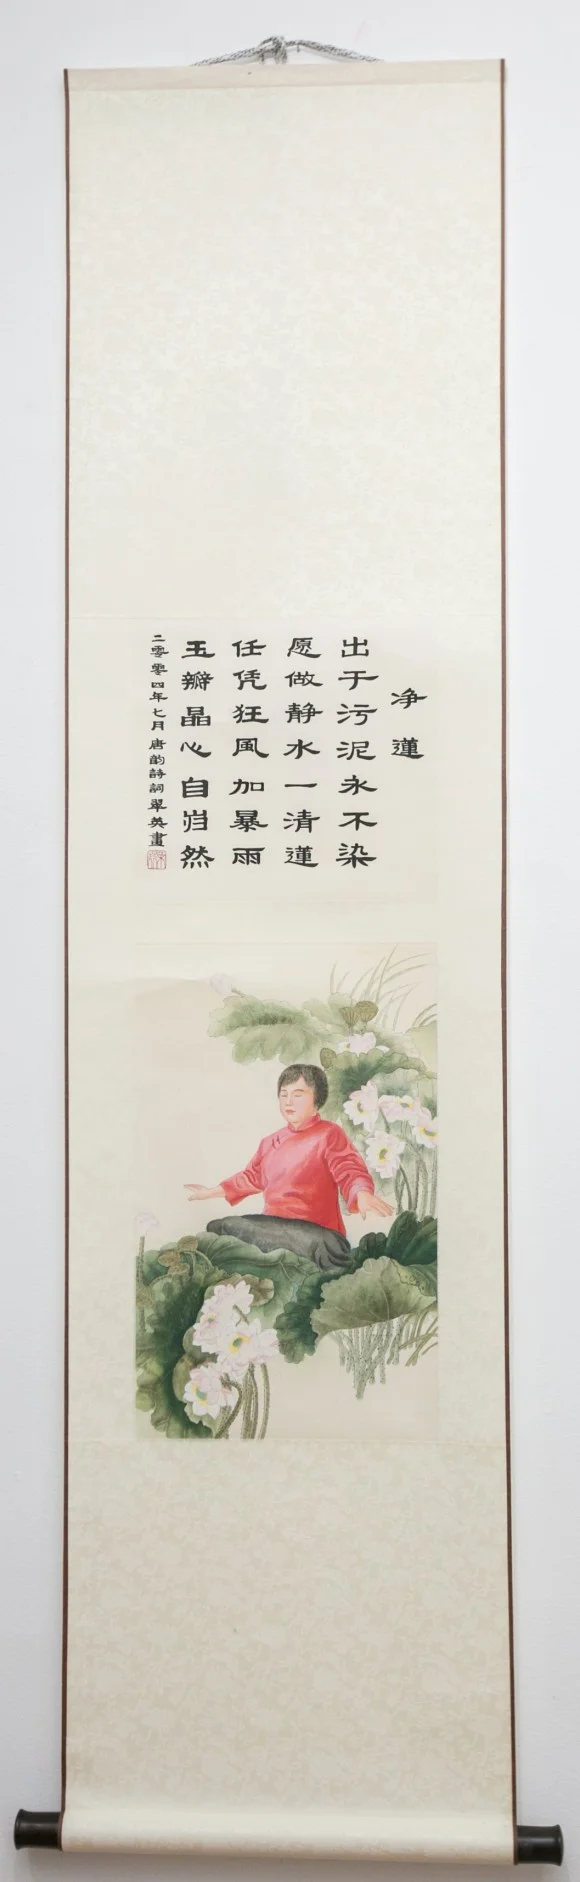 净蓮
出于污泥永不染
愿做静水一清蓮
任凭狂風加暴雨
玉瓣晶心自岿然
二零零四年七月 唐韵詩詞翠英畫